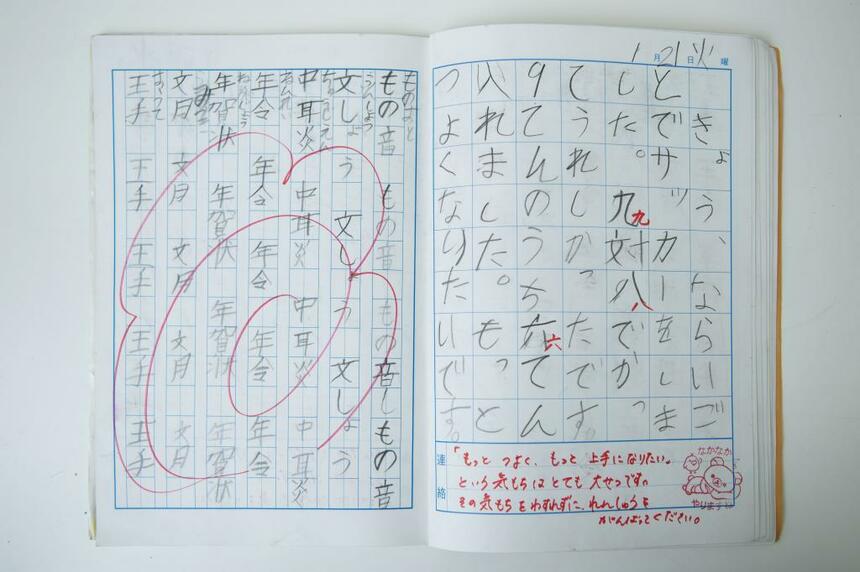 1月21日火曜
きょう、ならいご
とでサッカーをしま
した。九対八でかっ
九
八
てうれしかったです。
9てんのうち六てん
六
入れました。もっと
つよくなりたいです。
連絡
「もっと つよく、もっと 上手になりたい。
という気もちはとても大せつです。
その気もちをわすれずに、れんしゅうを
がんばってください。
なかなか
やりますな
もの音 もの音 もの音 もの音
文しょう 文しょう 文しょう
中耳炎 中耳炎 中耳炎 中耳炎
年令 年令 年令 年令 年令
年賀状 年賀状 年賀状 年賀状
文月 文月 文月 文月 文月
王手 王手 王手 王手 王手